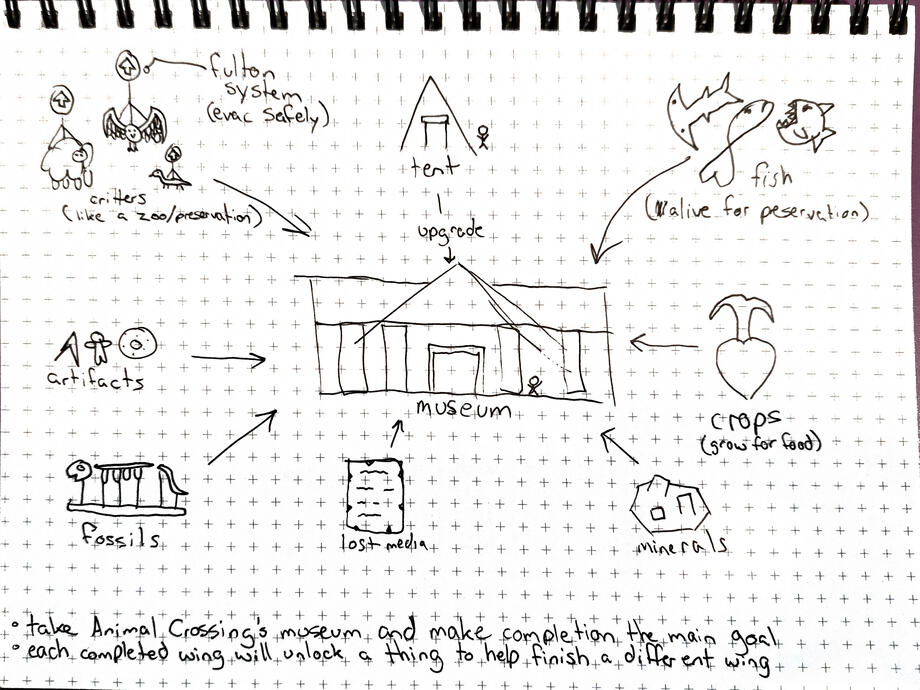 fulton
system
(evac safely)
critters
(like a zoo/preservation)
tent
upgrade
fish
(alive for peservation)
artifacts
museum
crops
(grow for food)
fossils
lost media
minerals
• take Animal Crossing's museum and make completion the main goal
• each completed wing will unlock a thing to help finish a different wing